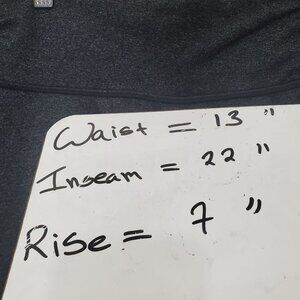 Waist = 13 "
Inseam = 22 "
Rise = 7 "